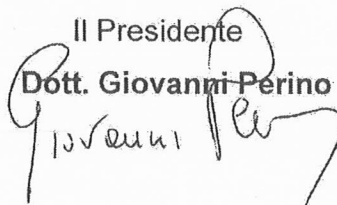 Il Presidente
Dott. Giovanni Perino
Giovanni